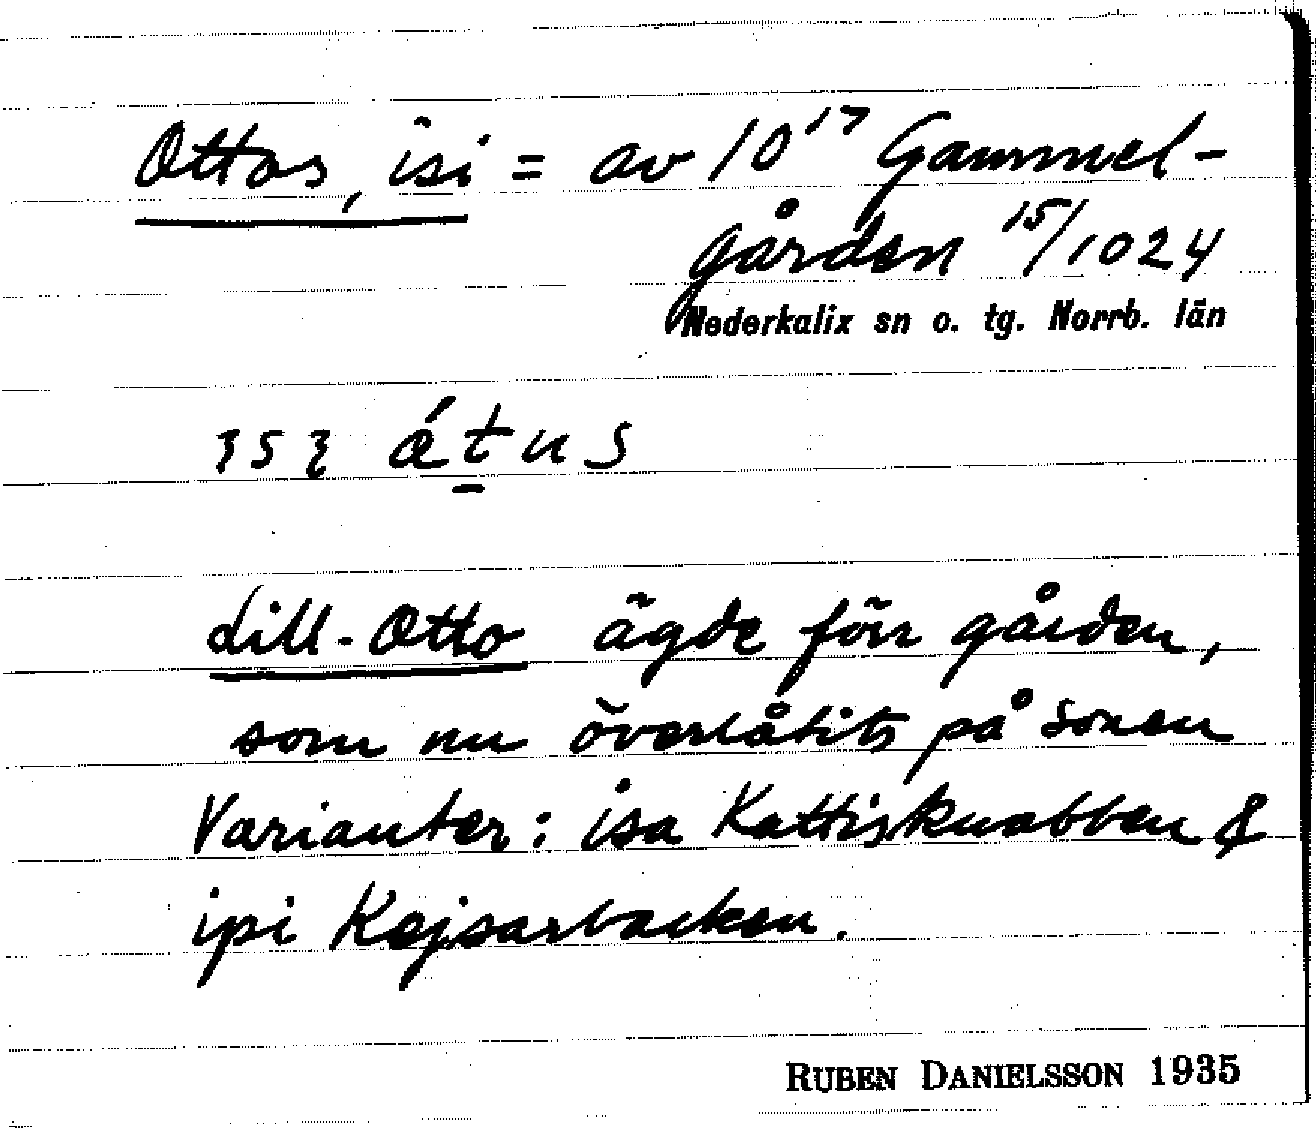 Ottos, isi = av 10¹⁷ Gammel-
gården ¹⁵/1024
Nederkalix sn o. tg. Norrb. län
ɿsɿ ǽt̠us
Lill-Otto ägde förr gården,
som nu överlåtits på sonen
Varianter: isa Kattisknabben &
ipi Kejsarbacken.
RUBEN DANIELSSON 1935